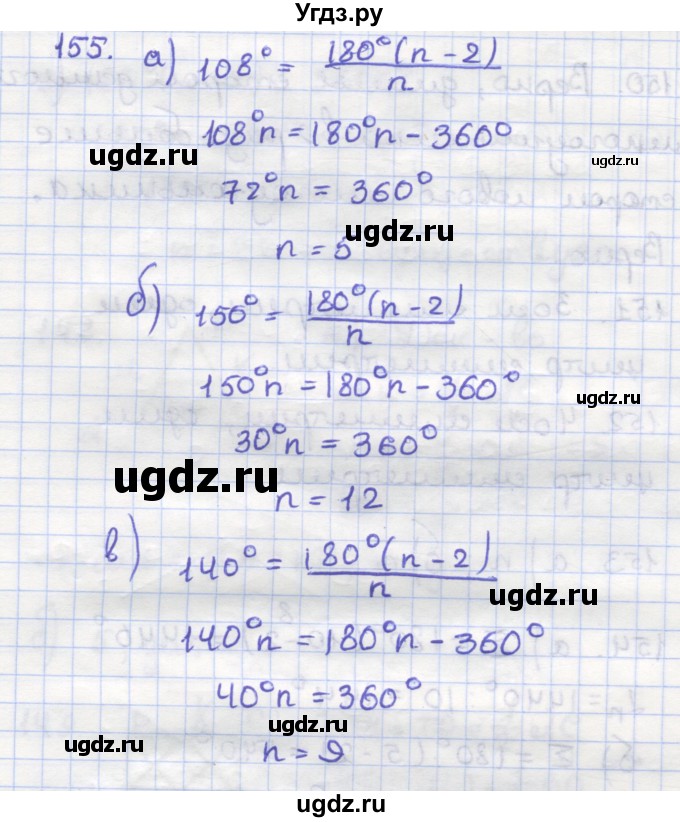 Угдз.ру
155. а) 108° = 180°(n - 2) / n
ugdz.ru
108°n = 180°n - 360°
ugdz.ru
ugdz.ru
72°n = 360°
ugdz.ru
n = 5
ugdz.ru
б) 150° = 180°(n - 2) / n
150°n = 180°n - 360°
ugdz.ru
30°n = 360°
ugdz.ru
n = 12
в) 140° = 180°(n - 2) / n
ugdz.ru
140°n = 180°n - 360°
40°n = 360°
ugdz.ru
ugdz.ru
n = 9
ugdz.ru